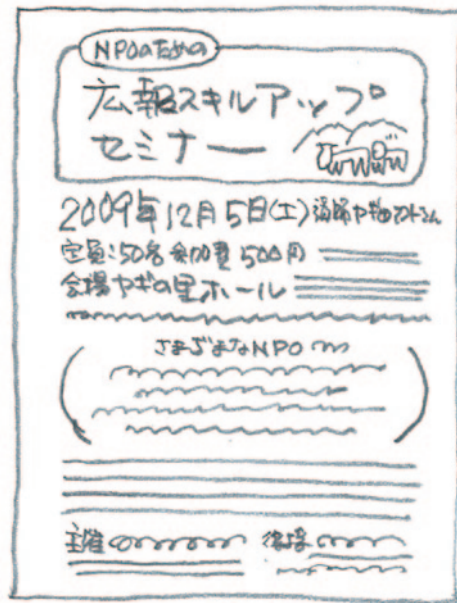 NPOのための
広報スキルアップ
セミナー
2009年12月5日(土) 講師
定員:50名 参加費 500円
会場 ヤギの里ホール
さまざまなNPO
主催 後援